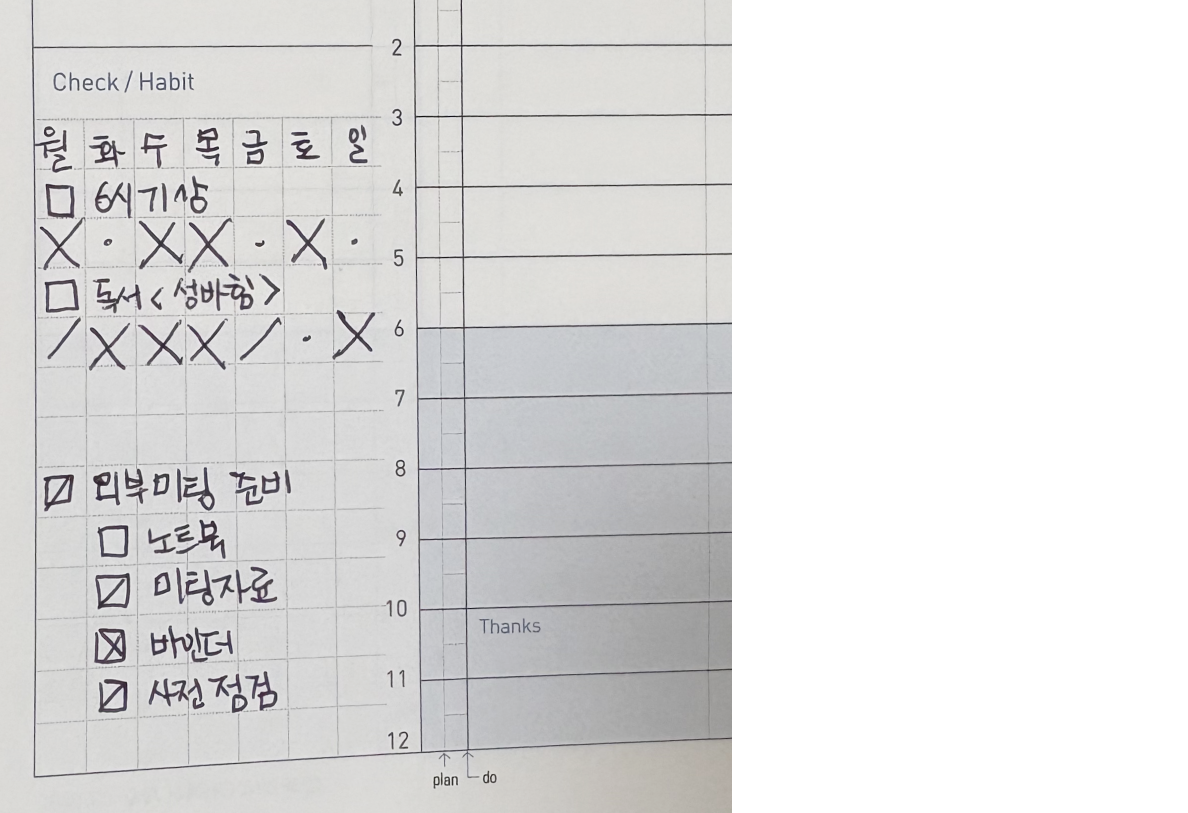 Check / Habit
월 화 수 목 금 토 일
□ 6시 기상
X · X X · X ·
□ 독서 < 성바힘 >
/ X X X / · X
☑ 외부미팅 준비
□ 노트북
☑ 미팅자료
☒ 바인더
☑ 사전 점검
2
3
4
5
6
7
8
9
10
11
12
Thanks
plan
do